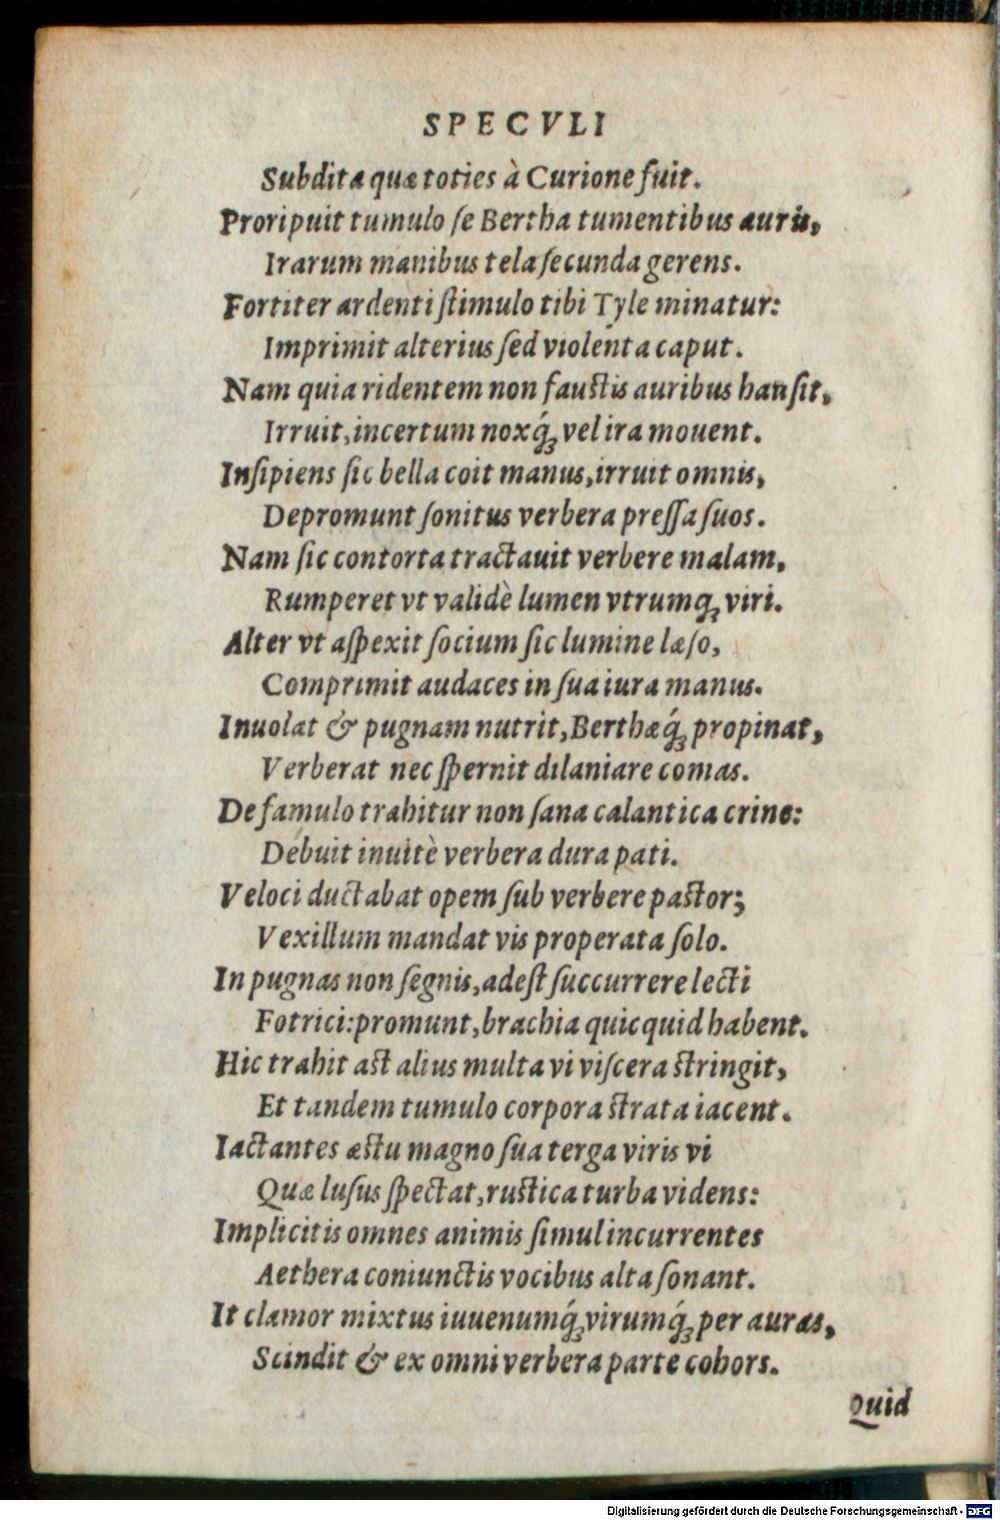 SPECVLI
Subdita quæ toties à Curione fuit.
Proripuit tumulo ſe Bertha tumentibus auris,
Irarum manibus tela ſecunda gerens.
Fortiter ardenti ſtimulo tibi Tyle minatur:
Imprimit alterius ſed violenta caput.
Nam quia ridentem non fauſtis auribus hauſit,
Irruit, incertum noxq́ꝫ vel ira mouent.
Inſipiens ſic bella coit manus, irruit omnis,
Depromunt ſonitus verbera preſſa ſuos.
Nam ſic contorta tractauit verbere malam,
Rumperet vt validè lumen vtrumqꝫ viri.
Alter vt aſpexit ſocium ſic lumine læſo,
Comprimit audaces in ſua iura manus.
Inuolat & pugnam nutrit, Berthæq́ꝫ propinat,
Verberat nec ſpernit dilaniare comas.
De famulo trahitur non ſana calantica crine:
Debuit inuitè verbera dura pati.
Veloci ductabat opem ſub verbere paſtor;
Vexillum mandat vis properata ſolo.
In pugnas non ſegnis, adeſt ſuccurrere lecti
Fotrici: promunt, brachia quicquid habent.
Hic trahit aſt alius multa vi viſcera ſtringit,
Et tandem tumulo corpora ſtrata iacent.
Iactantes æſtu magno ſua terga viris vi
Quæ luſus ſpectat, ruſtica turba videns:
Implicitis omnes animis ſimul incurrentes
Aethera coniunctis vocibus alta ſonant.
It clamor mixtus iuuenumq́ꝫ virumq́ꝫ per auras,
Scindit & ex omni verbera parte cohors.
Quid
Digitalisierung gefördert durch die Deutsche Forschungsgemeinschaft - DFG